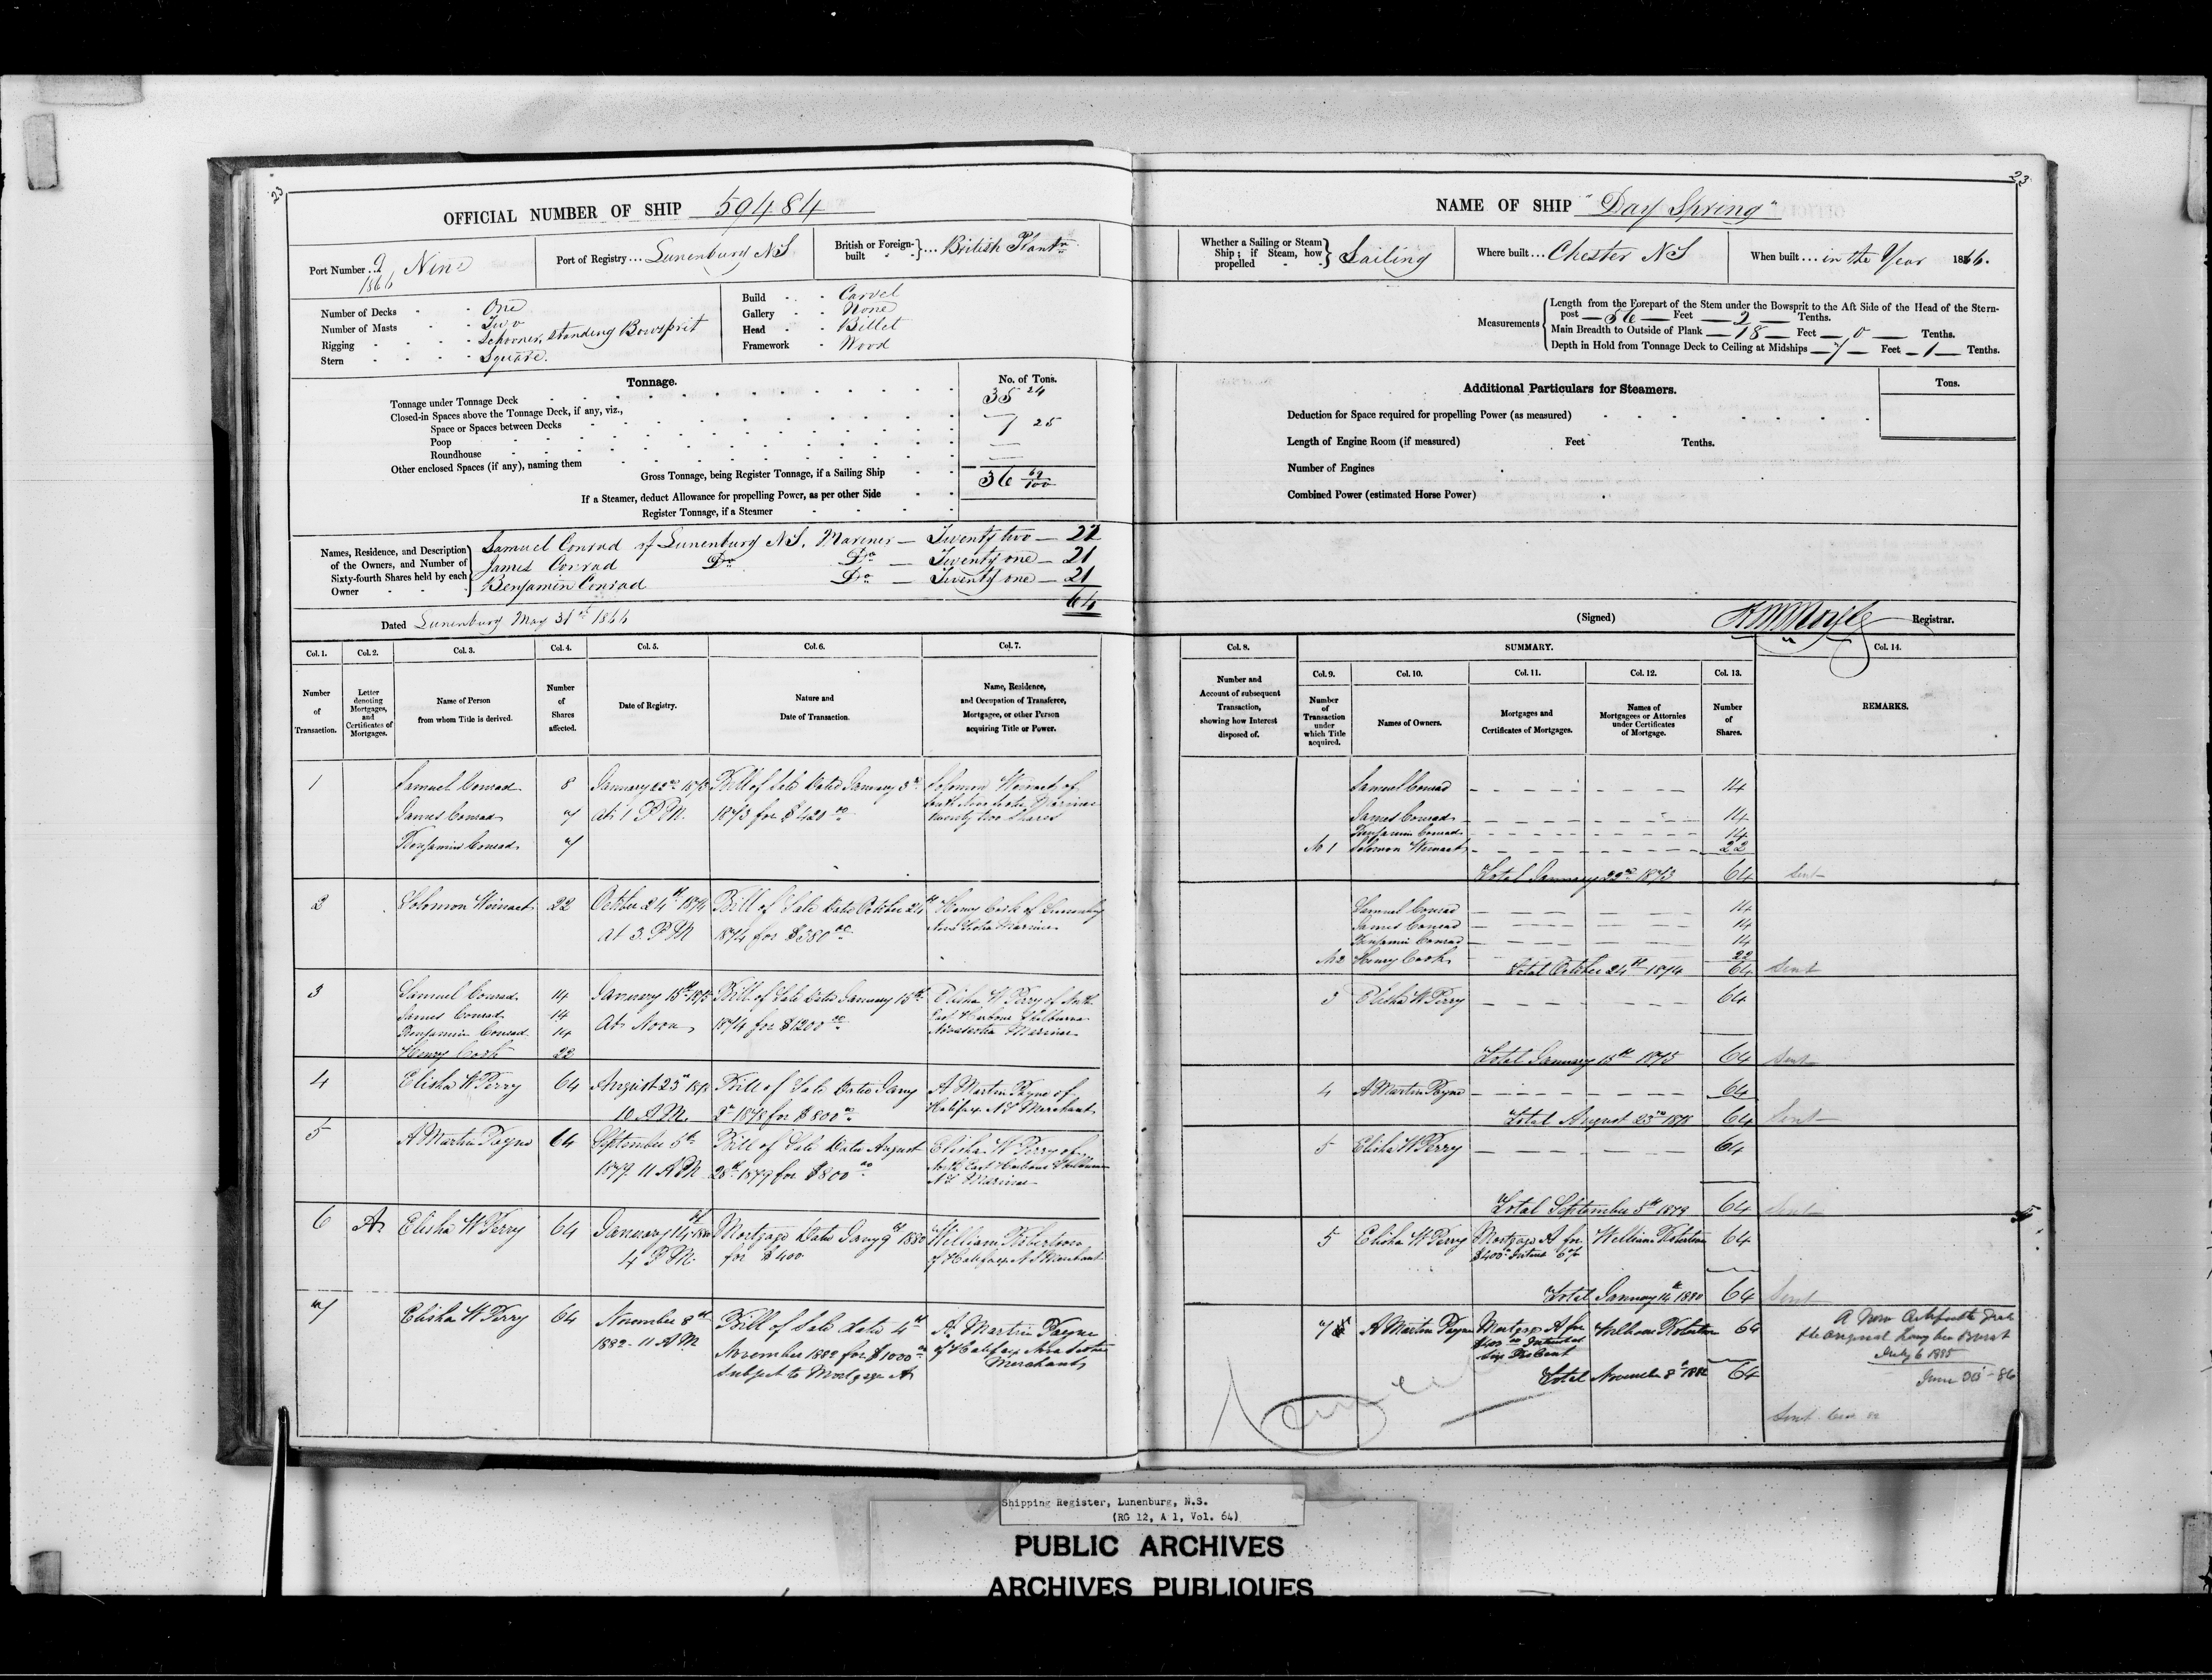 23
OFFICIAL NUMBER OF SHIP 59484
Port Number 9/1866 Nine
Port of Registry... Lunenburg NS
British or Foreign-built }... British Plantn
Number of Decks - One
Number of Masts - Two
Rigging - Schooner, standing Bowsprit
Stern - Square.
Build - Carvel
Gallery - None
Head - Billet
Framework - Wood
Tonnage.
No. of Tons.
Tonnage under Tonnage Deck 35 24
Closed-in Spaces above the Tonnage Deck, if any, viz.,
Space or Spaces between Decks
Poop
Roundhouse
Other enclosed Spaces (if any), naming them
Gross Tonnage, being Register Tonnage, if a Sailing Ship 36 69/100
If a Steamer, deduct Allowance for propelling Power, as per other Side
Register Tonnage, if a Steamer
Names, Residence, and Description of the Owners, and Number of Sixty-fourth Shares held by each Owner
Samuel Conrad of Lunenburg NS, Mariner — Twenty two — 22
James Conrad Do Do — Twenty one — 21
Benjamin Conrad Do — Twenty one — 21
64
Dated Lunenburg May 31st 1866
Col. 1. Number of Transaction.
Col. 2. Letter denoting Mortgages, and Certificates of Mortgages.
Col. 3. Name of Person from whom Title is derived.
Col. 4. Number of Shares affected.
Col. 5. Date of Registry.
Col. 6. Nature and Date of Transaction.
Col. 7. Name, Residence, and Occupation of Transferee, Mortgagee, or other Person acquiring Title or Power.
1 Samuel Conrad 8 January 22nd 1873 Bill of Sale Dated January 3rd Solomon Weinacht of
James Conrad 7 at 1 P.M. 1873 for $420 00 Mariner
Benjamin Conrad 7 twenty two Shares
2 Solomon Weinacht 22 October 24th 1874 Bill of Sale Date October 24th Henry Cook of Lunenburg
at 3. P.M 1874 for $380 00 Nova Scotia Mariner
3 Samuel Conrad 14 January 15th 1875 Bill of Sale Dated January 15th Elisha W Perry of North
James Conrad 14 At Noon 1874 for $1200 00 East Harbour Shelburne
Benjamin Conrad 14 Novascotia Mariner
Henry Cook 22
4 Elisha W Perry 64 August 23rd 1878 Bill of Sale Date Jany A Martin Payne of
10 A.M. 2nd 1878 for $800 00 Halifax NS Merchant
5 A Martin Payne 64 September 5th Bill of Sale Date August Elisha W Perry of
1879 11 A M 28th 1879 for $800 00 North East Harbour Shelburne
NS Mariner
6 A Elisha W Perry 64 January 14th 1880 Mortgage Date Jany 9th 1880 William Robertson
4 P M. for $400 of Halifax N S Merchant
7 Elisha W Perry 64 November 8th Bill of Sale date 4th A. Martin Payne
1882 - 11 A M November 1882 for $1000 00 of Halifax Nova Scotia
Subject to Mortgage A Merchant
23
NAME OF SHIP "Day Spring"
Whether a Sailing or Steam Ship; if Steam, how propelled } Sailing
Where built... Chester NS
When built... in the Year 1866.
Measurements
Length from the Forepart of the Stem under the Bowsprit to the Aft Side of the Head of the Stern-
post — 56 — Feet — 2 — Tenths.
Main Breadth to Outside of Plank — 18 — Feet — 0 — Tenths.
Depth in Hold from Tonnage Deck to Ceiling at Midships — 7 — Feet — 1 — Tenths.
Additional Particulars for Steamers.
Tons.
Deduction for Space required for propelling Power (as measured)
Length of Engine Room (if measured) Feet Tenths.
Number of Engines
Combined Power (estimated Horse Power)
(Signed) Registrar.
Col. 8. Number and Account of subsequent Transaction, showing how Interest disposed of.
SUMMARY.
Col. 9. Number of Transaction under which Title acquired.
Col. 10. Names of Owners.
Col. 11. Mortgages and Certificates of Mortgages.
Col. 12. Names of Mortgagees or Attornies under Certificates of Mortgage.
Col. 13. Number of Shares.
Col. 14. REMARKS.
Samuel Conrad 14
James Conrad 14
Benjamin Conrad 14
No 1 Solomon Weinacht 22
Total January 22nd 1873 64 Sent
Samuel Conrad 14
James Conrad 14
Benjamin Conrad 14
No 2 Henry Cook 22
Total October 24th 1874 64 Sent
3 Elisha W Perry 64
Total January 15th 1875 64 Sent
4 A Martin Payne 64
Total August 23rd 1878 64 Sent
5 Elisha W Perry 64
Total September 5th 1879 64 Sent
5 Elisha W Perry Mortgage A for William Robertson 64
$400 Interest 6%
Total January 14th 1880 64 Sent
7 A Martin Payne Mortgage A for William Robertson 64
$400 00 Interest at
Six Per Cent
Total November 8th 1882 64
A New Certificate
the original having been Burnt
July 6 1885
June -86
Sent
Shipping Register, Lunenburg, N.S.
(RG 12, A 1, Vol. 64)
PUBLIC ARCHIVES
ARCHIVES PUBLIQUES